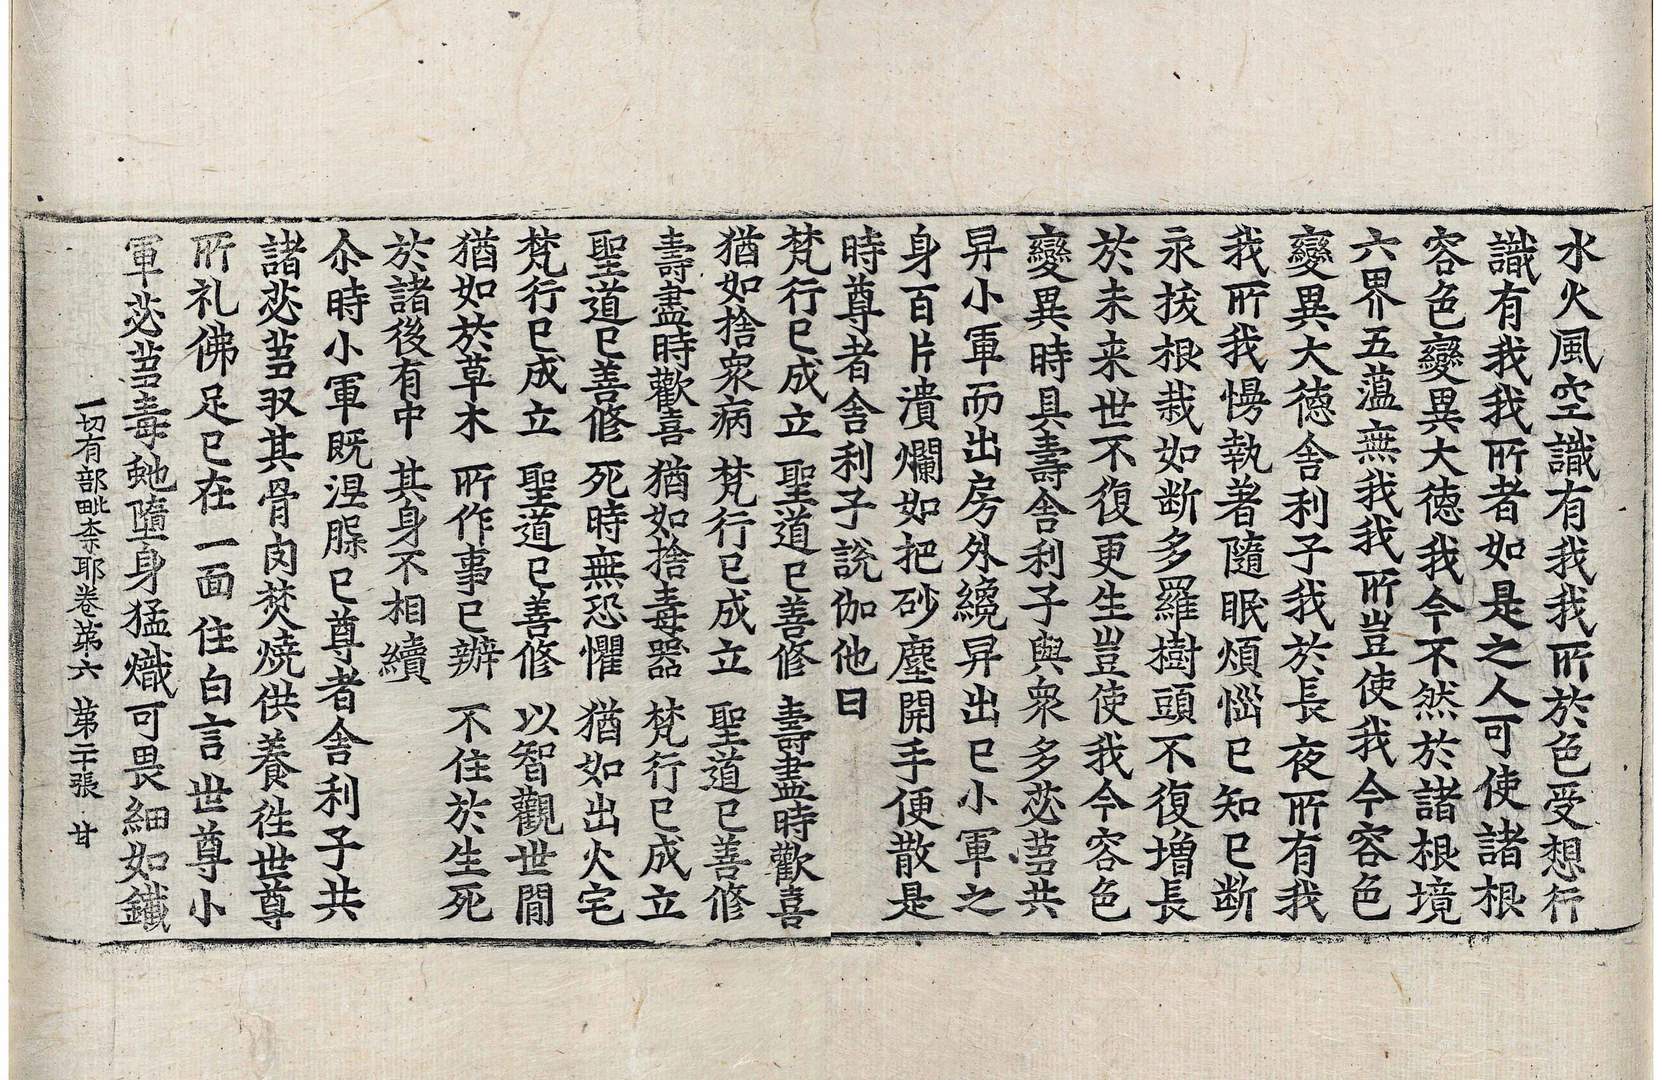 水火風空識有我我所於色受想行
識有我我所者如是之人可使諸根
容色變異大德我今不然於諸根境
六界五蕰無我我所豈使我今容色
變異大德舍利子我於長夜所有我
我所我慢執著隨眠煩惱已知已断
永拔根栽如断多羅樹頭不復增長
於未来世不復更生豈使我今容色
變異時具壽舍利子與衆多苾蒭共
舁小軍而出房外纔舁出已小軍之
身百片潰爛如把砂塵開手便散是
時尊者舍利子說伽他曰
梵行已成立 聖道已善修 壽盡時歡喜
猶如捨衆病 梵行已成立 聖道已善修
壽盡時歡喜 猶如捨毒器 梵行已成立
聖道已善修 死時無恐懼 猶如出火宅
梵行已成立 聖道已善修 以智觀世間
猶如於草木 所作事已辦 不住於生死
於諸後有中 其身不相續
尒時小軍既湼脲已尊者舍利子共
諸苾蒭収其骨肉焚燒供養徃世尊
所礼佛足已在一面住白言世尊小
軍苾蒭毒虵墮身猛熾可畏細如鐵
一切有部毗奈耶卷苐六 苐二十張 甘